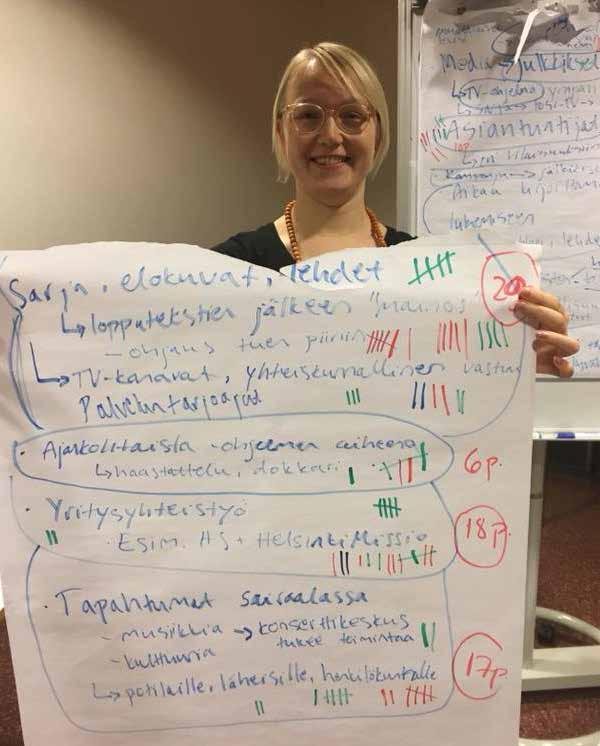 Media → julkkikset
↳ TV-ohjelma
↳ sarja → tosi-TV →
Asiantuntijat
10p.
Kampanja →
lukemiseen
Sarja, elokuvat, lehdet
20p.
↳ lopputekstien jälkeen "mainos"
- ohjaus tuen piiriin
↳ TV-kanavat, yhteiskunnallinen vastuu
Palveluntarjoajat
· Ajankohtaista -ohjelman aiheena
6p.
↳ haastattelu, dokkari
· Yritysyhteistyö
18p.
· Esim. HS + HelsinkiMissio
· Tapahtumat sairaalassa
- musiikkia → konserttikeskus
tukee toimintaa
- kulttuuria
17p.
↳ potilaille, läheisille, henkilökunnalle